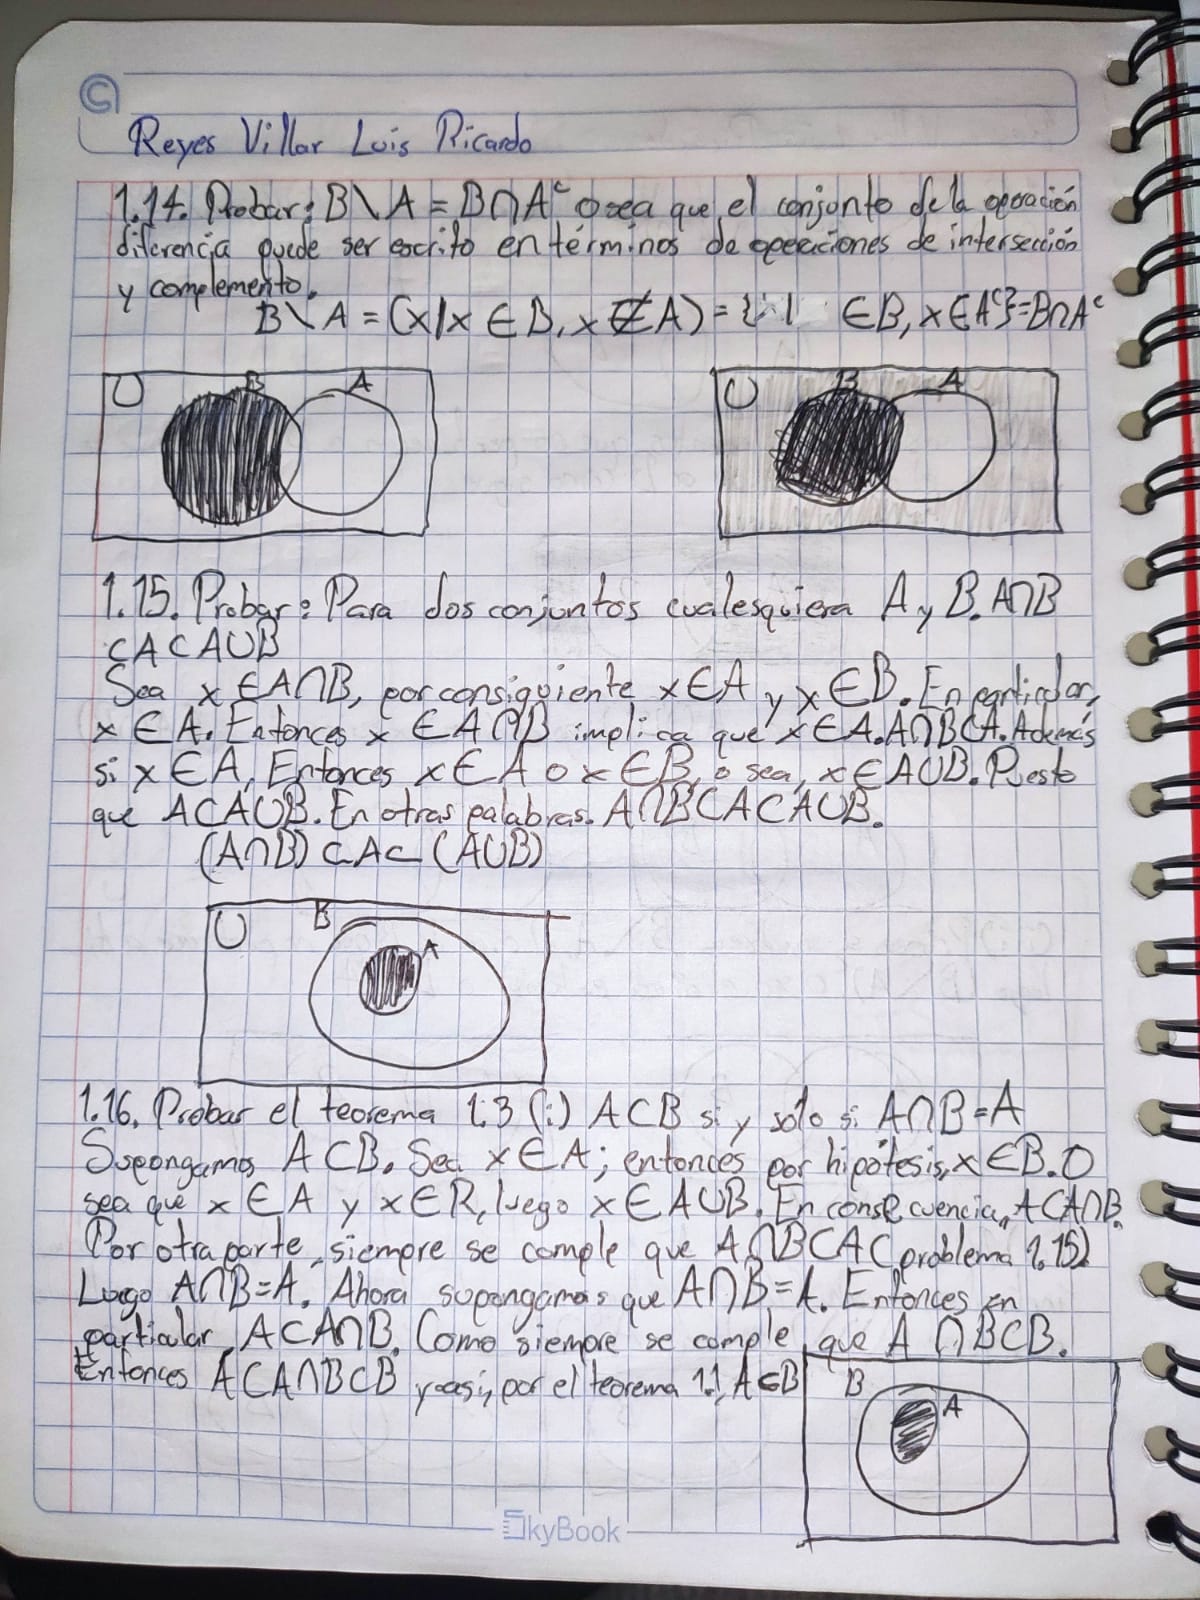 Reyes Villar Luis Ricardo
1.14. Probar: B\A = B∩Aᶜ o sea que el conjunto de la operación
diferencia puede ser escrito en términos de operaciones de intersección
y complemento.
B\A = (x|x ∈ B, x ∉ A) = { | ∈B, x∈Aᶜ}=B∩Aᶜ
U B A
U B A
1.15. Probar: Para dos conjuntos cualesquiera A y B. A∩B
⊂A⊂A∪B
Sea x∈A∩B, por consiguiente x∈A y x∈B. En particular,
x∈A. Entonces x∈A∩B implica que x∈A. A∩B⊂A. Además
si x∈A, Entonces x∈A o x∈B, o sea, x∈A∪B. Puesto
que A⊂A∪B. En otras palabras. A∩B⊂A⊂A∪B.
(A∩B)⊂A⊂(A∪B)
U B A
1.16. Probar el teorema 1.3 (i) A⊂B si y solo si A∩B=A
Supongamos A⊂B. Sea x∈A; entonces por hipótesis, x∈B. O
sea que x∈A y x∈R, luego x∈A∪B. En consecuencia, A⊂A∩B.
Por otra parte, siempre se comple que A∩B⊂A (problema 1.15)
Luego A∩B=A. Ahora supongamos que A∩B=A. Entonces en
particular A⊂A∩B. Como siempre se comple que A∩B⊂B.
Entonces A⊂A∩B⊂B y asi, por el teorema 1.1, A⊂B
B A
SkyBook